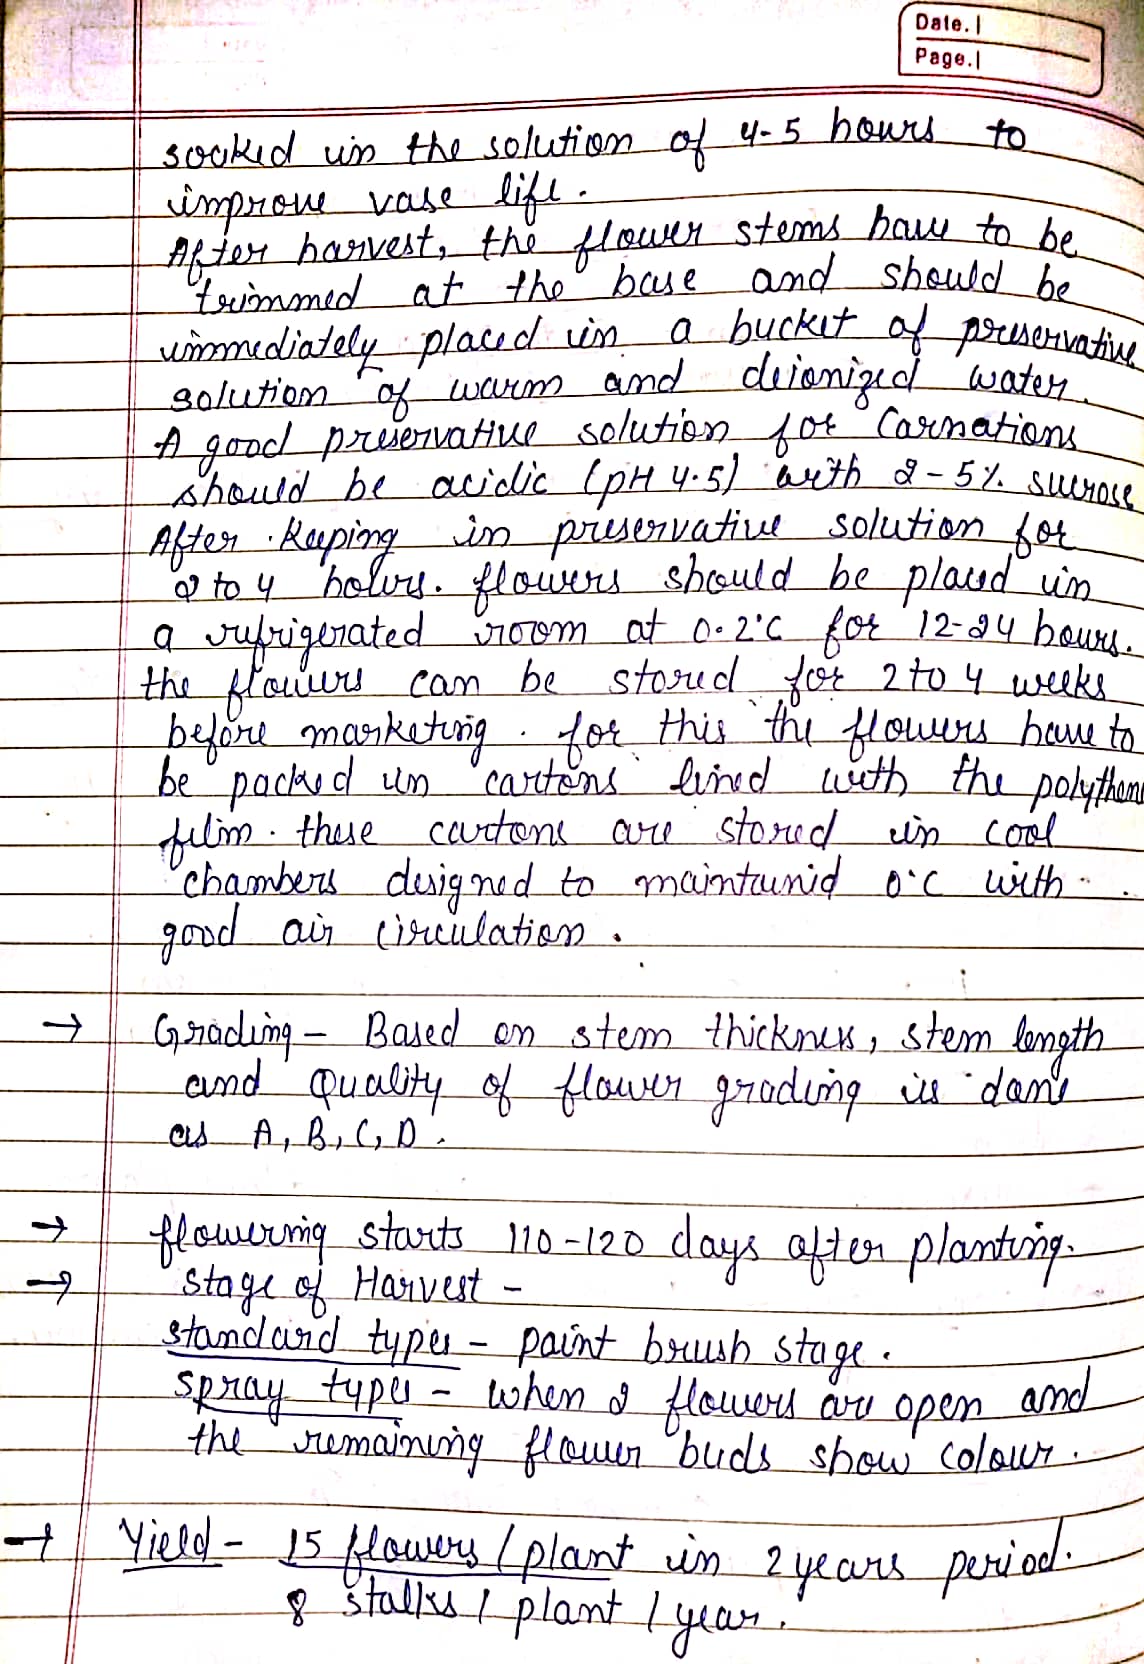 Date.
Page.
soaked in the solution of 4-5 hours to
improve vase life.
After harvest, the flower stems have to be
trimmed at the base and should be
immediately placed in a bucket of preservative
solution of warm and deionized water.
A good preservative solution for Carnations
should be acidic (pH 4.5) with 2-5% sucrose
After keeping in preservative solution for
2 to 4 holurs. flowers should be placed in
a refrigerated room at 0-2°C for 12-24 hours.
the flowers can be stored for 2 to 4 weeks
before marketing. for this the flowers have to
be packed in cartons lined with the polythene
film. these cartons are stored in cool
chambers designed to maintainid 0°C with
good air circulation.
→ Grading - Based on stem thickness, stem length
and Quality of flower grading is done
as A, B, C, D.
→ flowering starts 110-120 days after planting.
→ Stage of Harvest -
standard types - paint brush stage.
spray types - when 2 flowers are open and
the remaining flower buds show colour.
→ Yield - 15 flowers / plant in 2 years period.
8 stalks / plant / year.